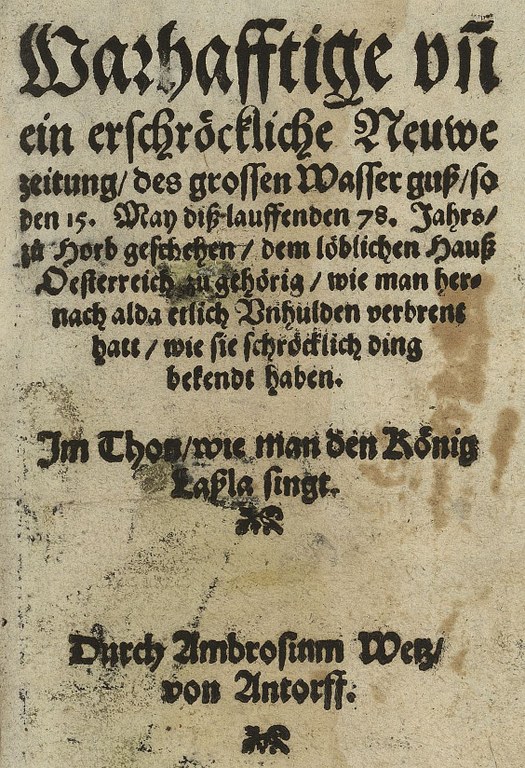 Warhafftige vñ
ein erschröckliche Neuwe
zeitung/ des grossen Wasser guß/ so
den 15. May diß lauffenden 78. Jahrs/
zů Horb geschehen / dem löblichen Hauß
Oesterreich zu gehörig / wie man her⸗
nach alda etlich Vnhulden verbrent
hatt / wie sie schröcklich ding
bekendt haben.
Im Thon/ wie man den König
Laßla singt.
Durch Ambrosium Wetz/
von Antorff.